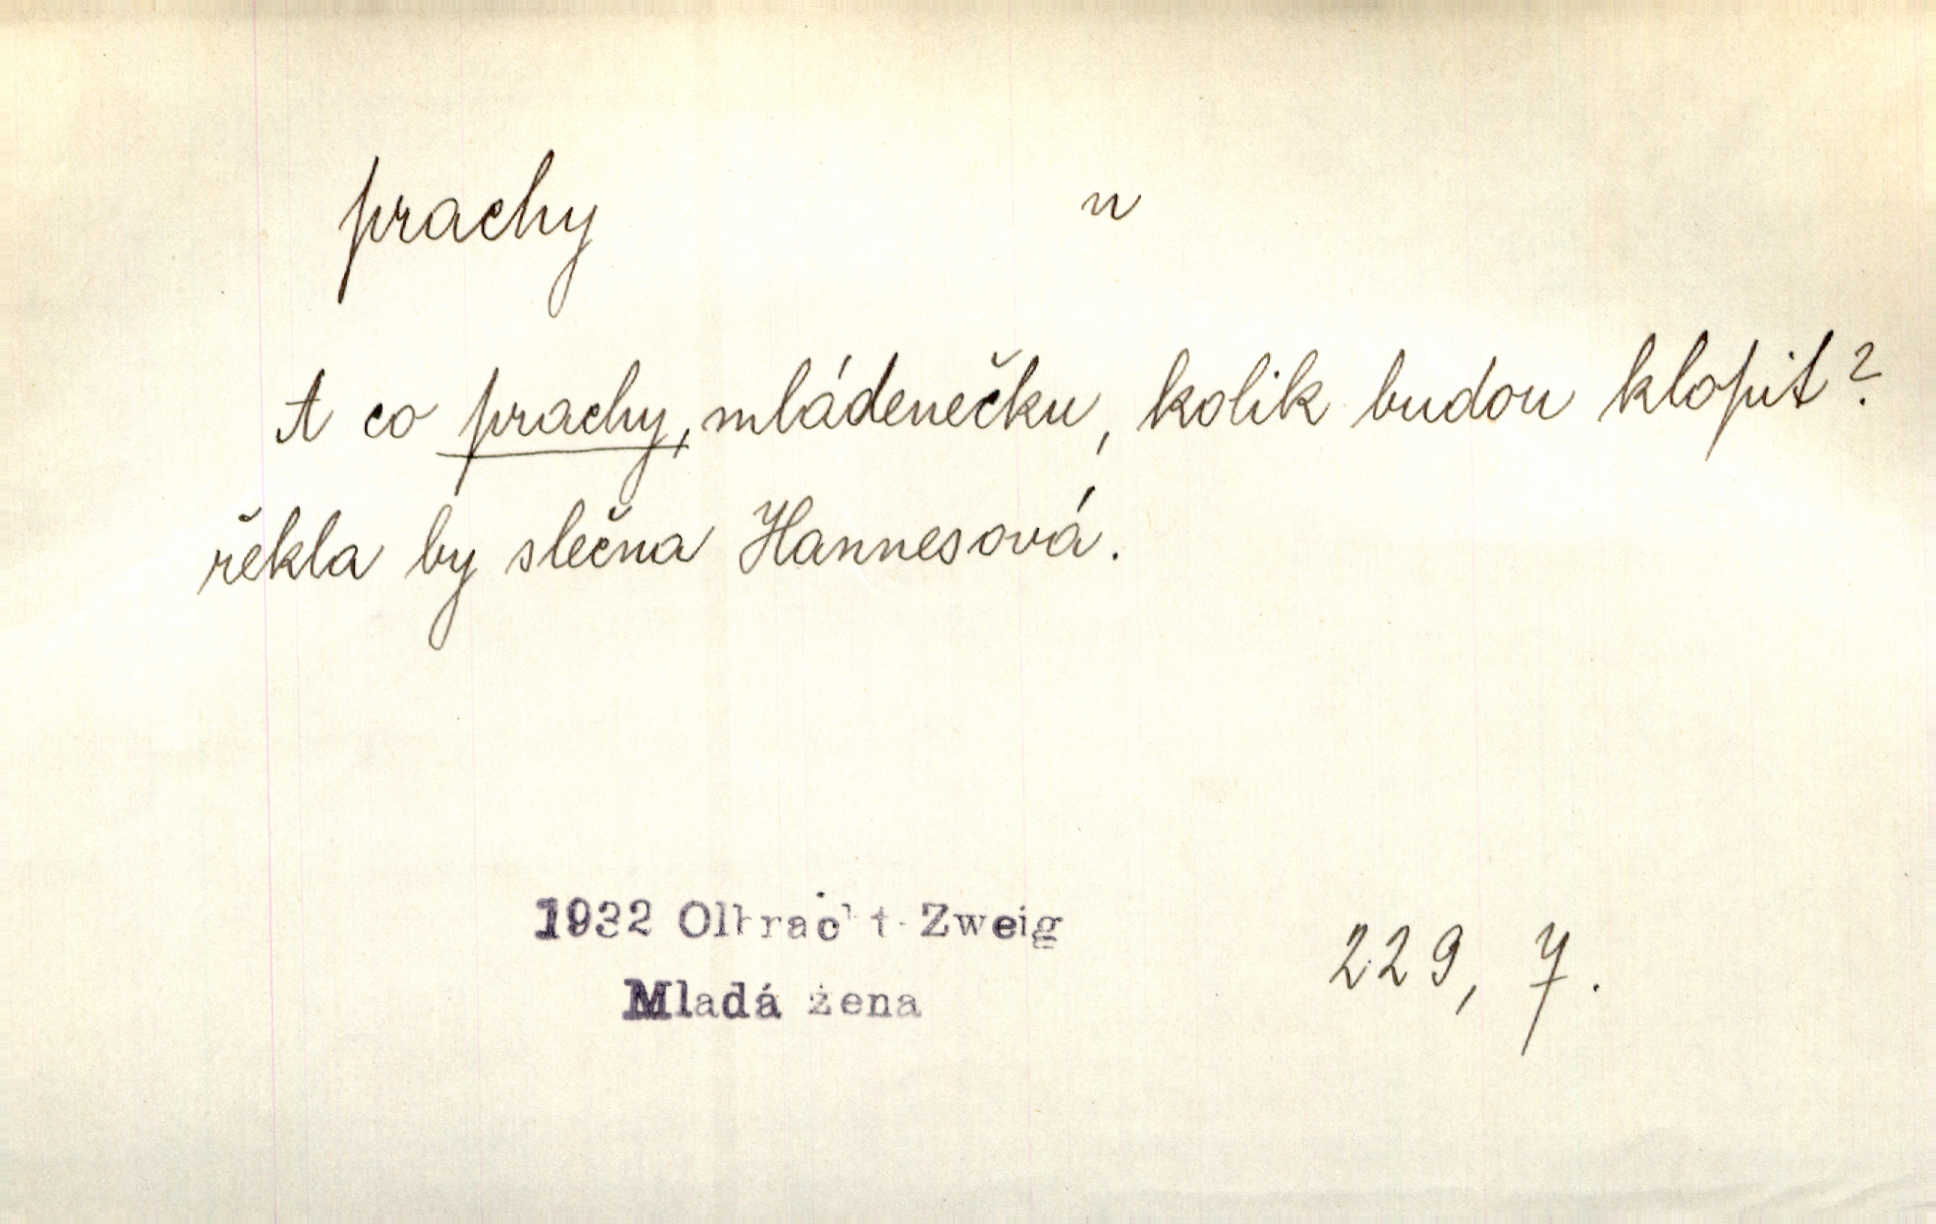 prachy n
A co prachy, mládenečku, kolik budou klopit?
řekla by slečna Hannesová.
1932 Olbracht-Zweig
Mladá žena
229, 7.